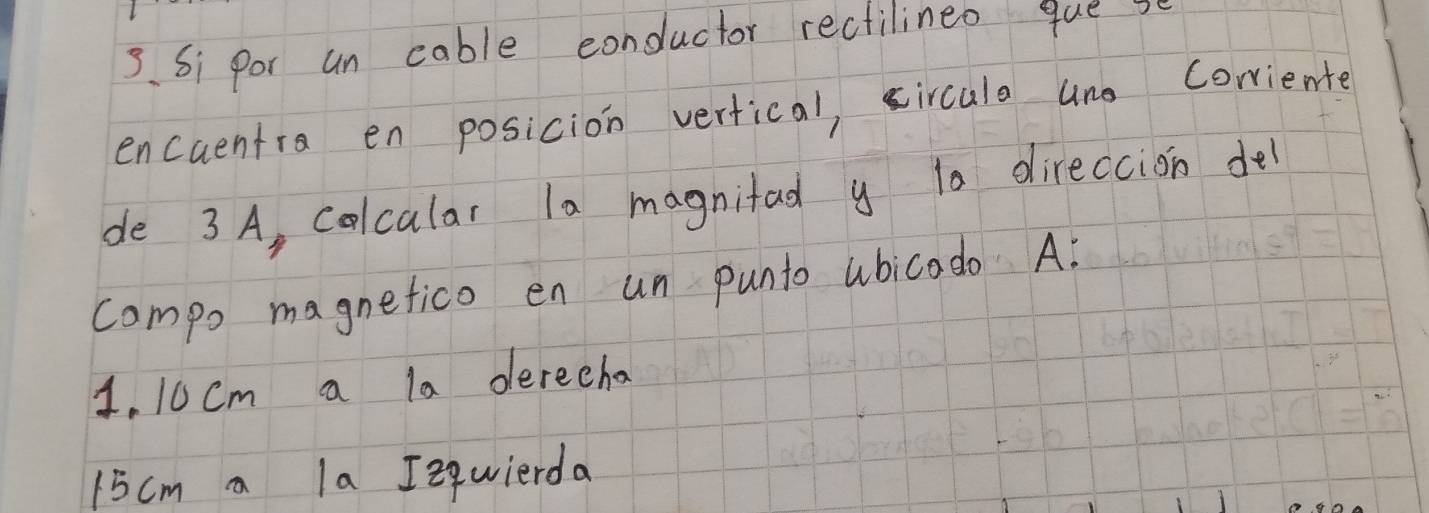 3. Si por un cable conductor rectilineo que se
encuentra en posición vertical, circula una corriente
de 3 A, calcular la magnitud y la dirección del
campo magnetico en un punto ubicado A:
1. 10 cm a la derecha
15 cm a la Izquierda